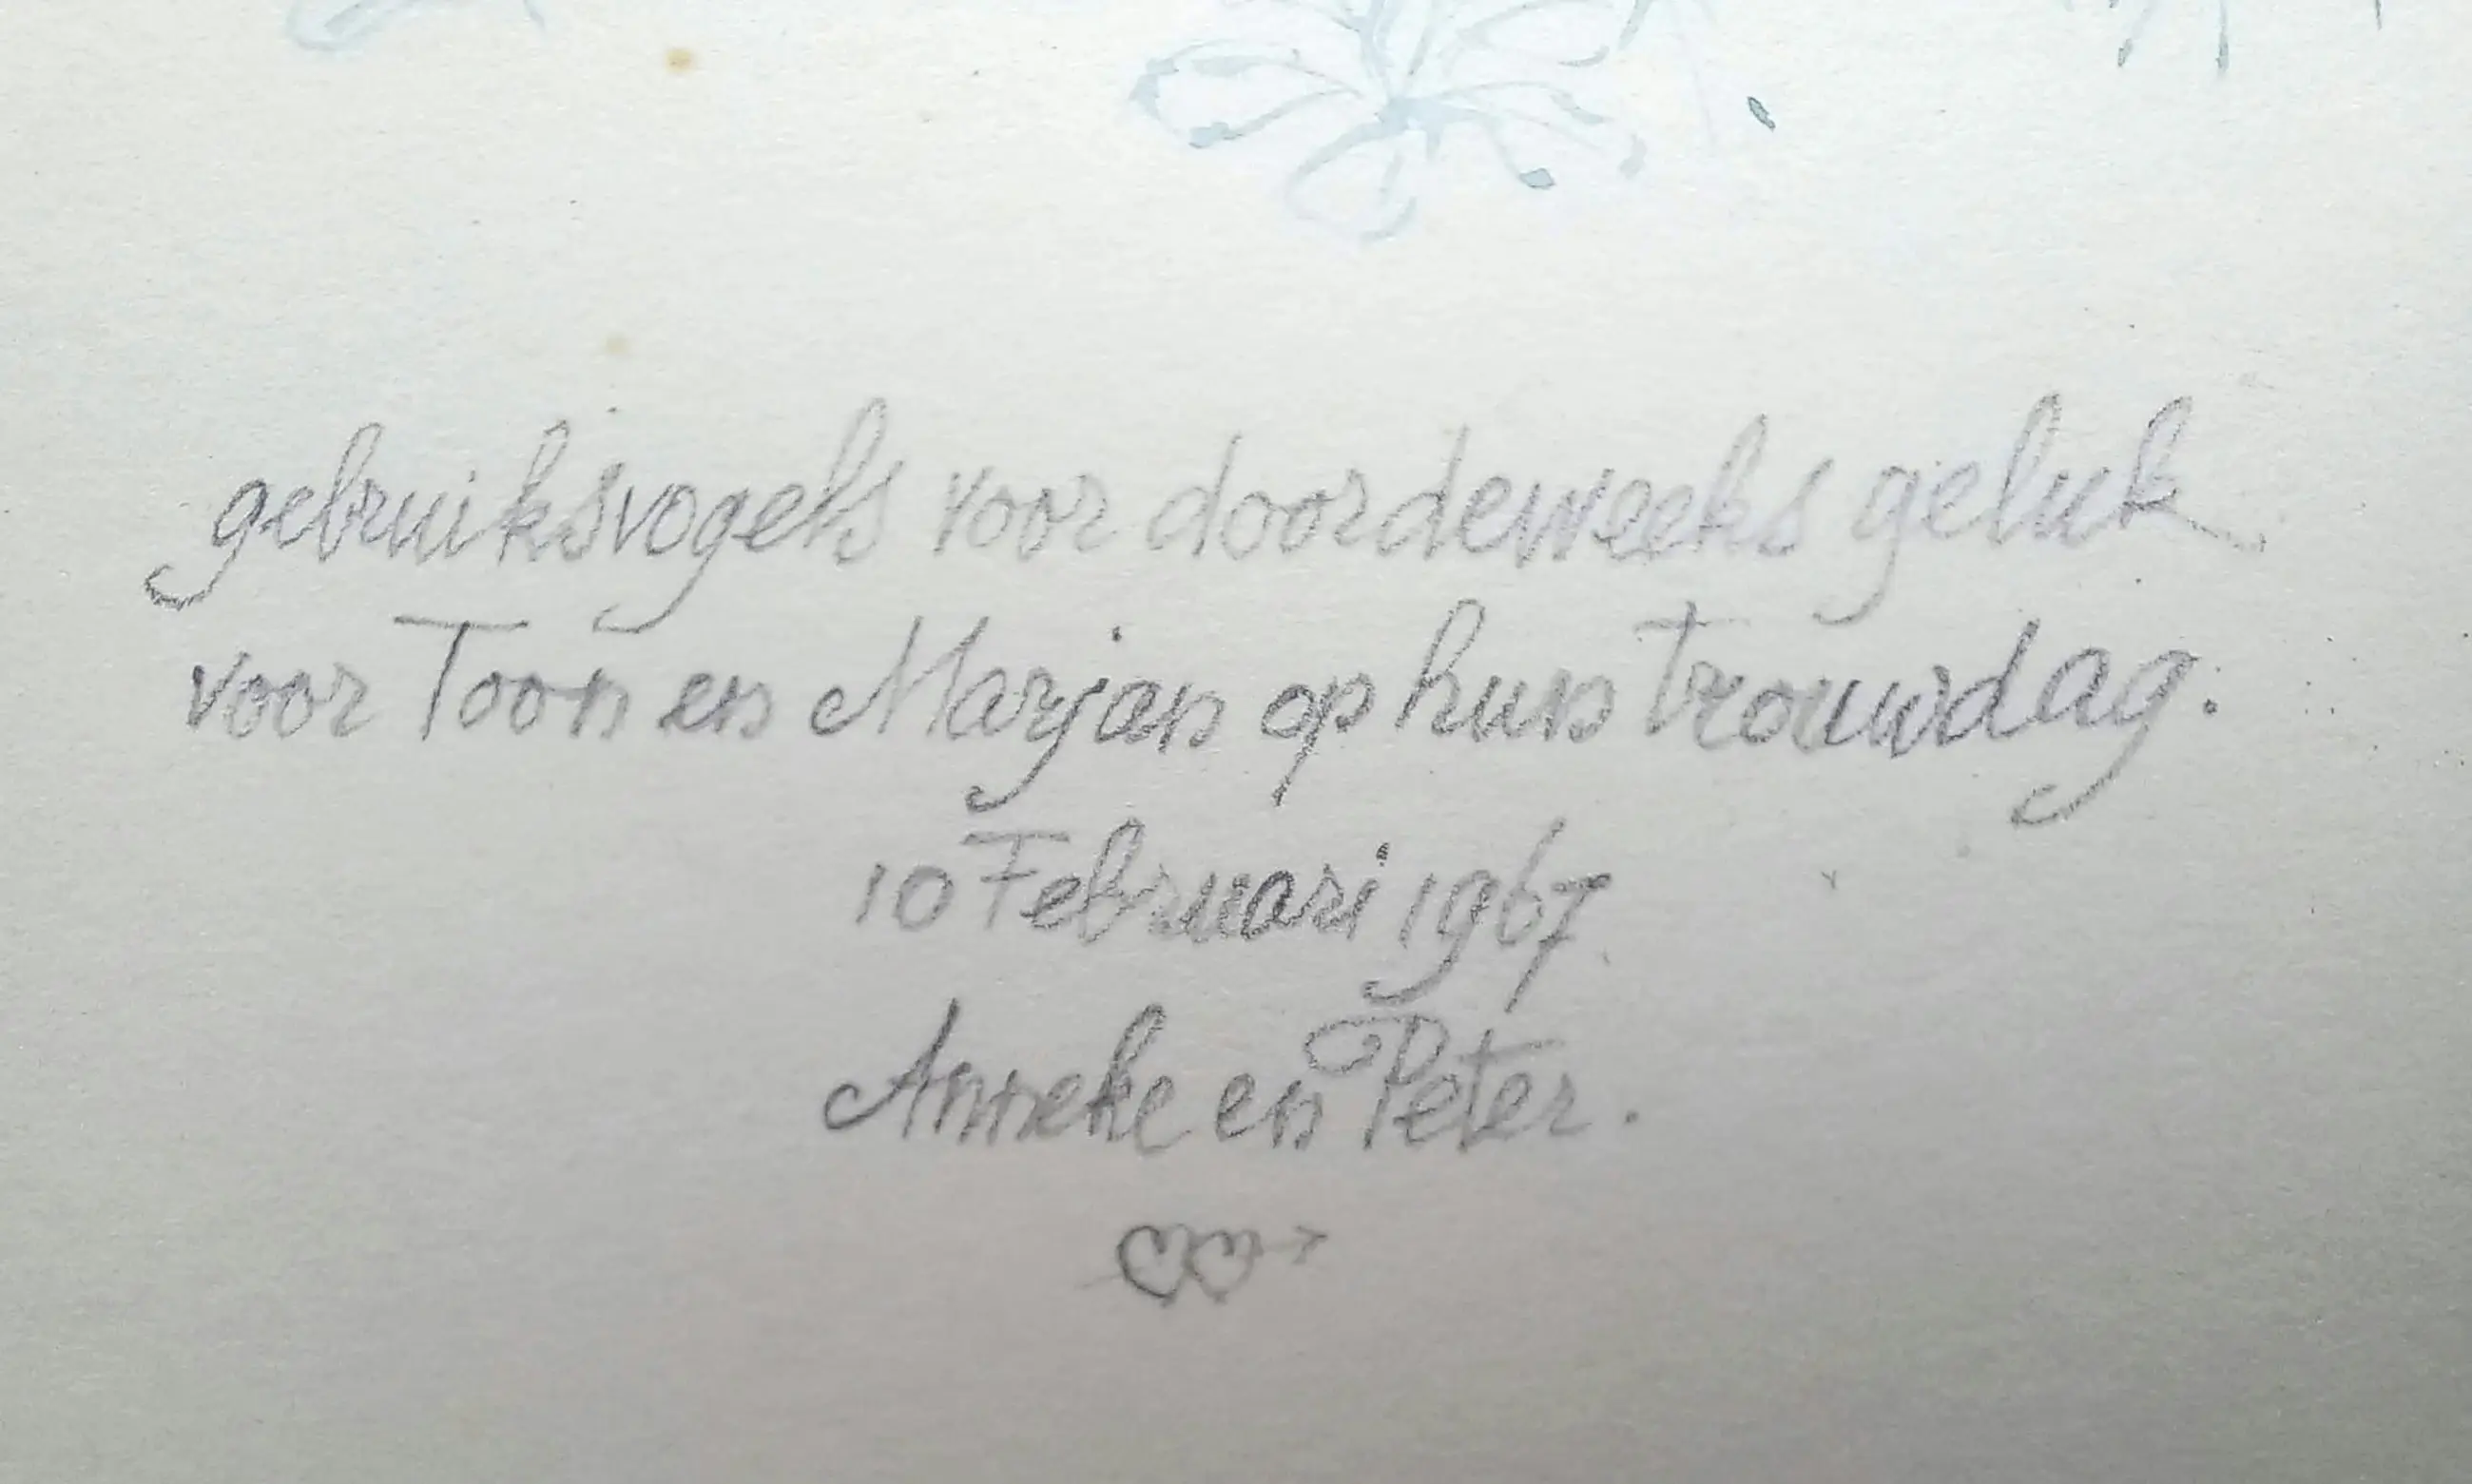 gebruiksvogels voor doordeweeks geluk
voor Toon en Marjan op hun trouwdag.
10 Februari 1967.
Anneke en Peter.